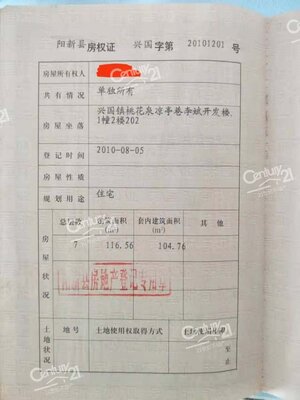 阳新县 房权证 兴国 字第 20101201 号
房屋所有权人
共有情况 单独所有
房屋坐落 兴国镇桃花泉凉亭巷李斌开发楼
1幢2楼202
登记时间 2010-08-05
房屋性质
规划用途 住宅
房屋状况 总层数 建筑面积(m²) 套内建筑面积(m²) 其他
7 116.56 104.76
房地产登记专用章
土地状况 地号 土地使用权取得方式 土地使用年限
至
止
CENTURY 21